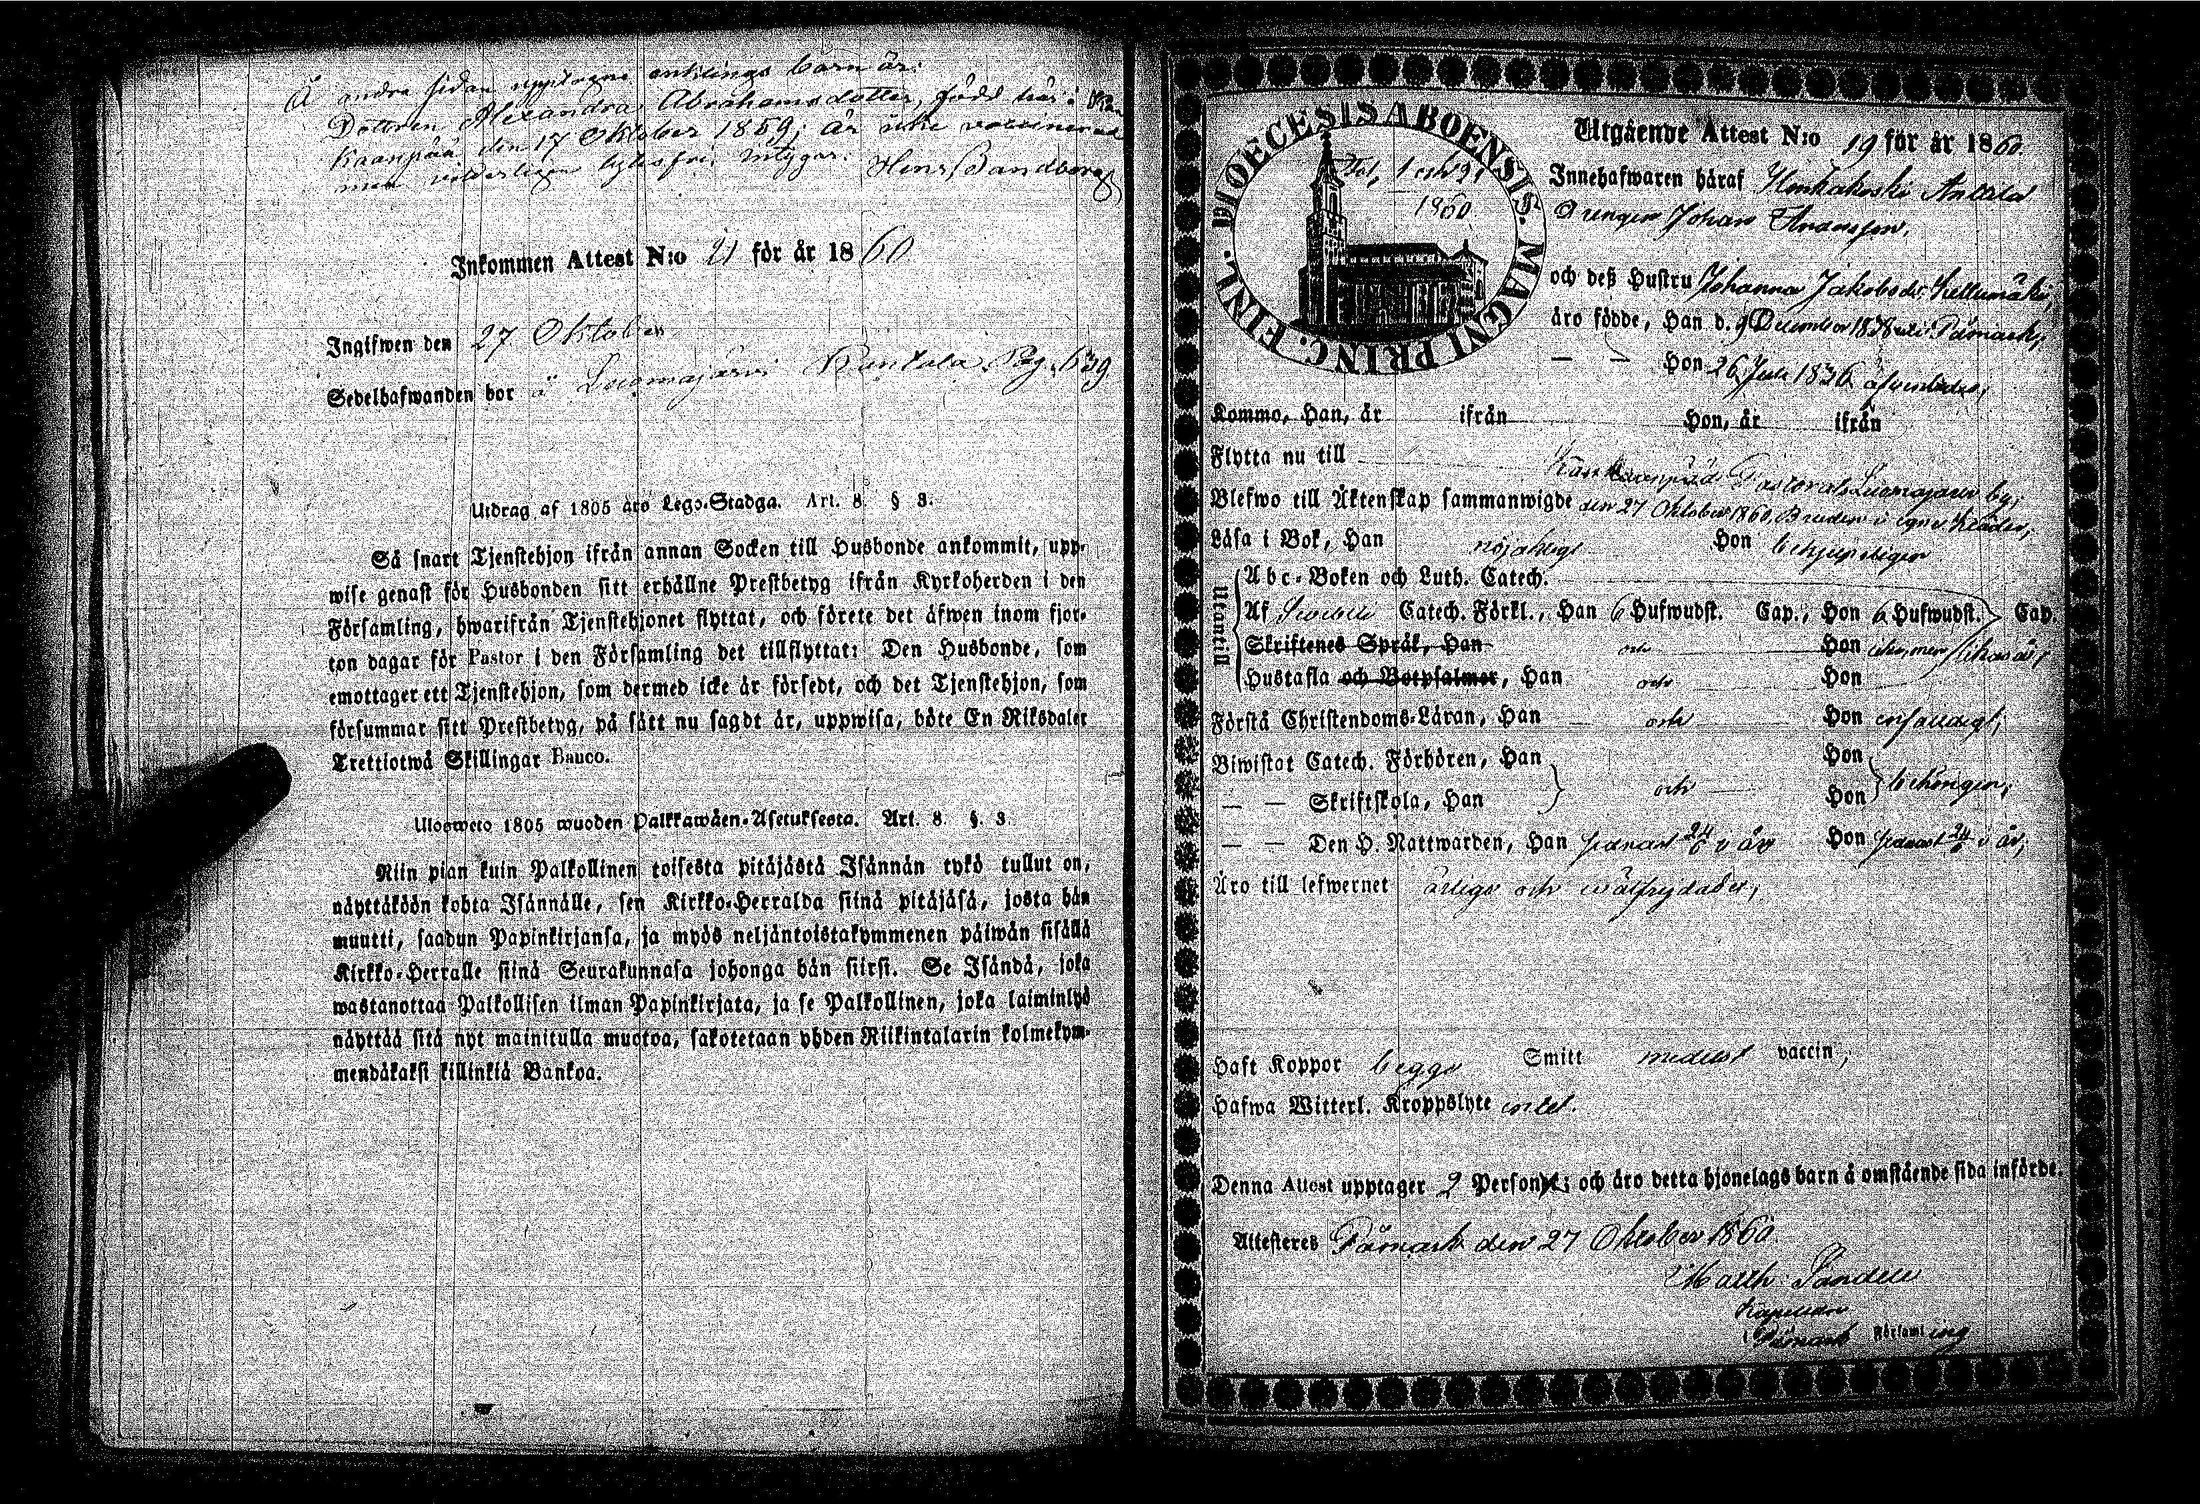 Å andra sidan upptagne enklings barn är:
Dottren Alexandra Abrahamsdotter, född här i
Kaanpää den 17 Oktober 1859; är icke vaccinerad
men lytesfri. Intygar: Henr Sandberg
Inkommen Attest N:o 21 för år 1860
Ingifwen den 27 Oktober
Sedelhafwanden bor å Luomajärvi Rantala Pag. 639
Utdrag af 1805 års Lego-Stadga. Art. 8. § 3.
Så snart Tjenstehjon ifrån annan Socken till Husbonde ankommit, upp-
wise genast för Husbonden sitt erhållne Prestbetyg ifrån Kyrkoherden i den
Församling, hwarifrån Tjenstehjonet flyttat, och förete det äfwen inom fjor-
ton dagar för Pastor i den Församling det tillflyttat: Den Husbonde, som
emottager ett Tjenstehjon, som dermed icke är försedt, och det Tjenstehjon, som
försummar sitt Prestbetyg, på sätt nu sagdt är, uppwisa, böte En Riksdaler
Trettiotwå Skillingar Banco.
Uloswéto 1805 wuoden Palkkawäen-Asetuksesta. Art. 8. §. 3.
Niin pian kuin Palkollinen toisesta pitäjästä Isännän tykö tullut on,
näyttäköön kohta Isännälle, sen Kirkko-Herralda siinä pitäjäsä, josta hän
muutti, saadun Papinkirjansa, ja myös neljäntoistakymmenen päiwän sisällä
Kirkko-Herralle siinä Seurakunnasa johonga hän siirsi. Se Isändä, joka
wastanottaa Palkollisen ilman Papinkirjata, ja se Palkollinen, joka laiminlyö
näyttää sitä nyt mainitulla muotoa, sakotetaan yhden Riikintalarin kolmekym-
mendäkaksi killinkiä Bankoa.
DIOECESIS ABOENSIS. MAGNI PRINC. FINL.
1860
Utgående Attest N:o 19 för år 1860.
Innehafwaren häraf Honkakoski Anttila
Drengen Johan Fransson,
och deß Hustru Johanna Jakobsdr Kellumäki,
äro födde, Han d. 9 December 1838 i Påmark,
— — Hon 26 Juli 1836 äfvenledes;
Kommo, Han, år ifrån Hon, år ifrån
Flytta nu till Kankaanpää Pastorat Luomajärvi by;
Blefwo till Äktenskap sammanwigde den 27 Oktober 1860, Bruden i egna kläder;
Läsa i Bok, Han nöjaktigt Hon behjelpeligen
Utantill
Abc-Boken och Luth. Catech.
Af Svebilii Catech. Förkl., Han 6 Hufwudst. Cap., Hon 6 Hufwudst. Cap.
Skriftenes Språk, Han och Hon
Hustafla och Botpsalmer, Han och Hon
Förstå Christendoms-Läran, Han och Hon enfaldigt;
Biwistat Catech. Förhören, Han Hon
och behörigen;
— — Skriftskola, Han Hon
— — Den H. Nattwarden, Han senast 24/6 i år Hon senast 24/6 i år;
Äro till lefwernet ärliga och wälfrejdade;
Haft Koppor begge Smitt medelst vaccin;
Hafwa Witterl. Kroppslyte intet.
Denna Attest upptager 2 Personer; och äro detta hjonelags barn å omstående sida införde.
Attesteras Påmark den 27 Oktober 1860
Matth: Sandell
Kapellan
Påmark Församling